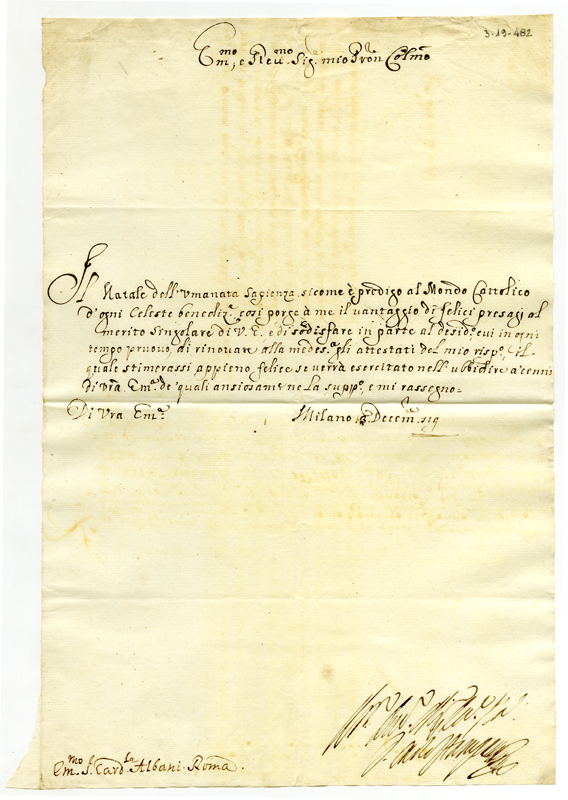 3-19-482
Em.mo, e Reu.mo Sig.re mio Pron Colmo
Il Natale dell'Umanata Sapienza, sicome è prodigo al Mondo Cattolico
d'ogni Celeste benediz.e, così porge à me il vantaggio di felici presagi al
merito Singolare di V. E. e di sodisfare in parte al desid.o, cui in ogni
tempo pruovo, di rinouar alla medes.a gli attestati del mio risp.o, il
quale stimerassi appieno felice se verrà esercitato nell'ubbidire a' cenni
di Vra Em.a de' quali ansiosam.e ne la supp.o, e mi rassegno
Di Vra Em.a
Milano Decem.re
Em.mo S. Card.le Albani. Roma.